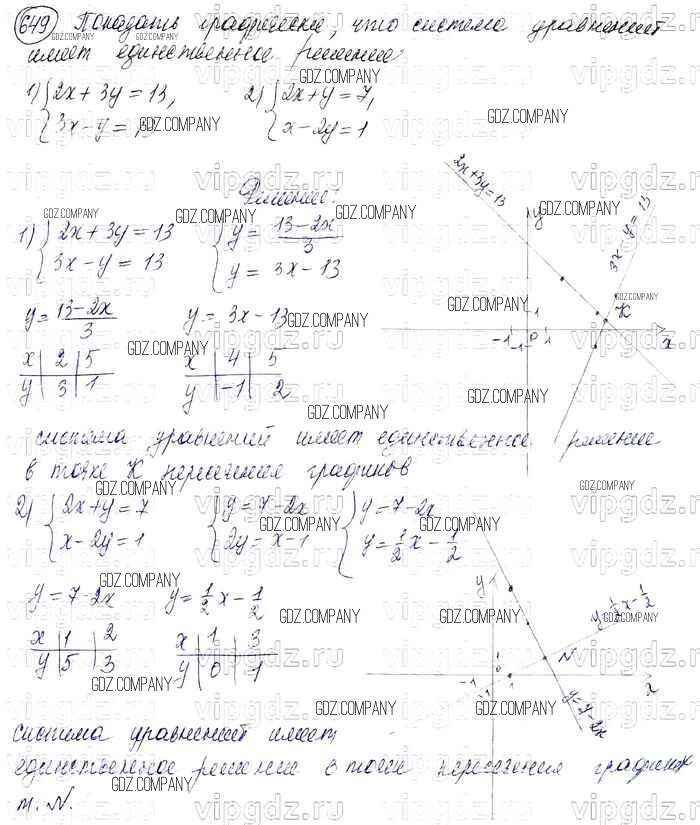 649 Показать графически, что система уравнений
имеет единственное решение:
1) { 2x + 3y = 13, 2) { 2x + y = 7,
{ 3x - y = 13 { x - 2y = 1
Решение:
1) { 2x + 3y = 13 { y = (13 - 2x)/3
{ 3x - y = 13 { y = 3x - 13
y = (13 - 2x)/3 y = 3x - 13
x | 2 | 5 x | 4 | 5
y | 3 | 1 y | -1 | 2
2x+3y=13
3x - y = 13
y
K
1
-1 0 1 x
-1
система уравнений имеет единственное решение
в точке K пересечения графиков
2) { 2x + y = 7 { y = 7 - 2x { y = 7 - 2x
{ x - 2y = 1 { 2y = x - 1 { y = 1/2 x - 1/2
y = 7 - 2x y = 1/2 x - 1/2
x | 1 | 2 x | 1 | 3
y | 5 | 3 y | 0 | 1
y
y = 1/2 x - 1/2
N
1
0
-1 1 x
-1
y = 7 - 2x
система уравнений имеет
единственное решение в точке пересечения графиков
т. N.
GDZ.COMPANY
vipgdz.ru